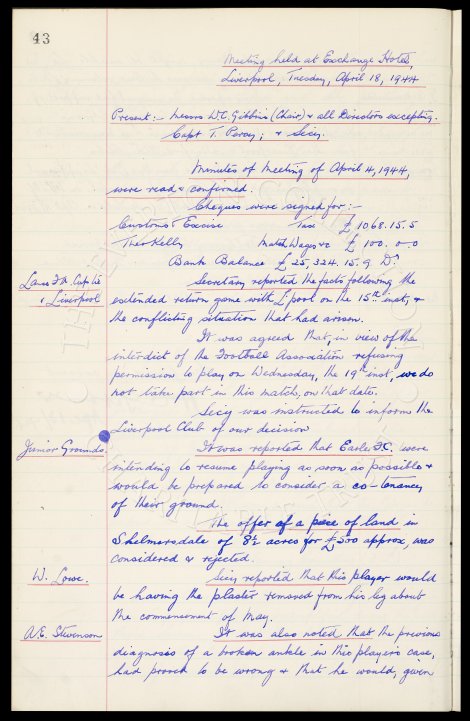 43
Meeting held at Exchange Hotel,
Liverpool, Tuesday, April 18, 1944
Present:- Messrs W.C. Gibbins (Chair) & all Directors excepting.
Capt T. Percy; & Secy.
Minutes of Meeting of April 4, 1944,
were read & confirmed.
Cheques were signed for:-
Customs & Excise Tax £1068.15.5
Theo Kelly Match Wages &c £100.0.0
Bank Balance £25,324.15.9 Dr.
Lancs F.A. Cup tie
v Liverpool
Secretary reported the facts following the
extended return game with L'pool on the 15th inst, &
the conflicting situation that had arisen.
It was agreed that, in view of the
interdict of the Football Association refusing
permission to play on Wednesday, the 19th inst, we do
not take part in this match, on that date.
Secy was instructed to inform the
Liverpool Club of our decision
Junior Grounds.
It was reported that Earle F.C. were
intending to resume playing as soon as possible &
would be prepared to consider a co-tenancy
of their ground.
The offer of a piece of land in
Skelmersdale of 8½ acres for £500 approx, was
considered & rejected.
W. Lowe.
Secy reported that this player would
be having the plaster removed from his leg about
the commencement of May.
A.E. Stevenson
It was also noted that the previous
diagnosis of a broken ankle in this player's case,
had proved to be wrong & that he would, given